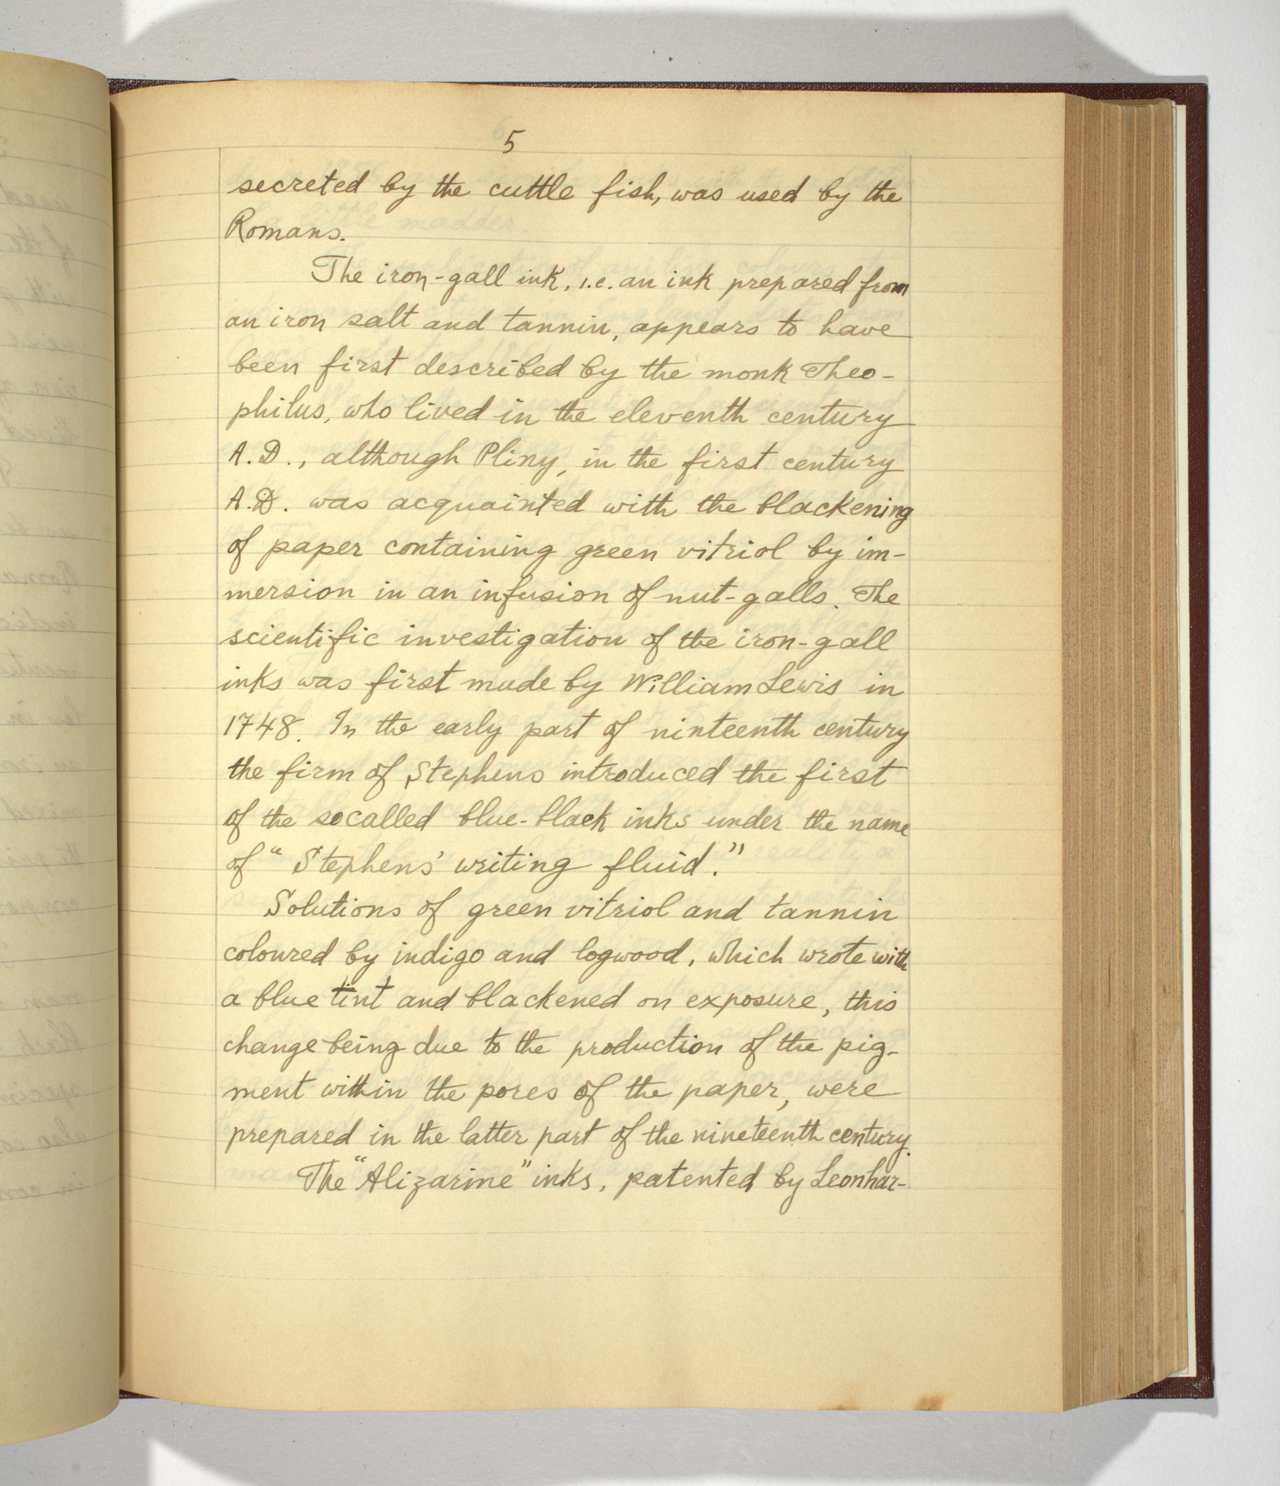 5
secreted by the cuttle fish, was used by the
Romans.
The iron-gall ink, i.e. an ink prepared from
an iron salt and tannin, appears to have
been first described by the monk Theo-
philus, who lived in the eleventh century
A.D., although Pliny, in the first century
A.D. was acquainted with the blackening
of paper containing green vitriol by im-
mersion in an infusion of nut-galls. The
scientific investigation of the iron-gall
inks was first made by William Lewis in
1748. In the early part of ninteenth century
the firm of Stephens introduced the first
of the socalled blue-black inks under the name
of "Stephens' writing fluid."
Solutions of green vitriol and tannin
coloured by indigo and logwood, which wrote with
a blue tint and blackened on exposure, this
change being due to the production of the pig-
ment within the pores of the paper, were
prepared in the latter part of the nineteenth century.
The "Alizarine" inks, patented by Leonhar-